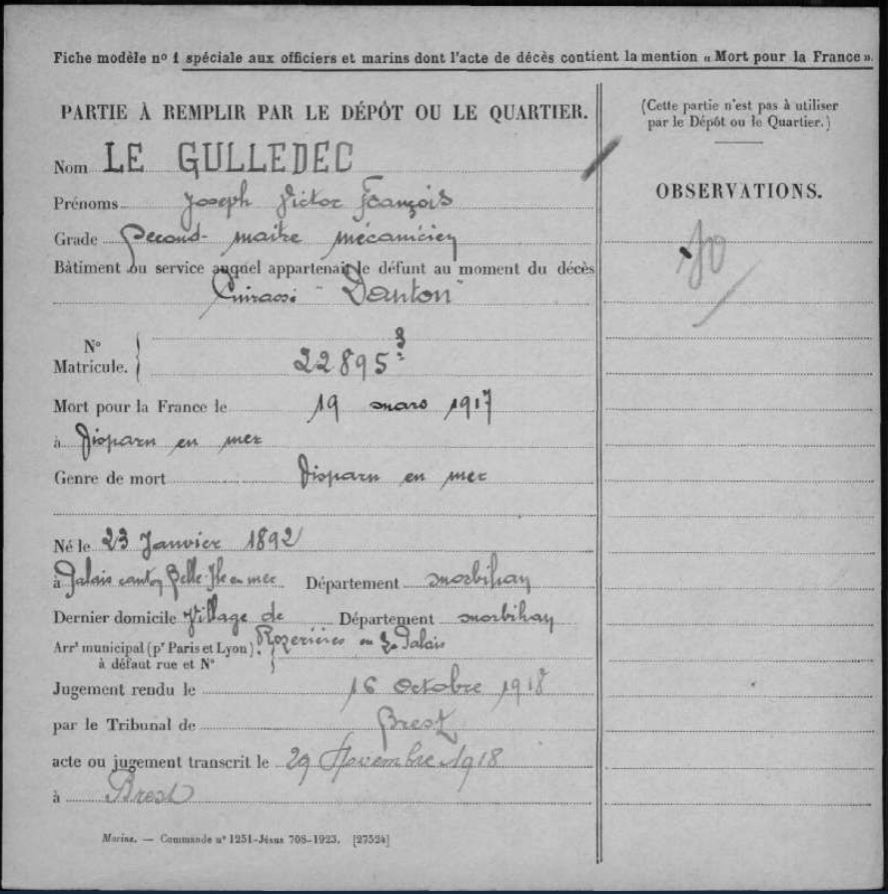 Fiche modèle nº 1 spéciale aux officiers et marins dont l'acte de décès contient la mention « Mort pour la France ».
PARTIE À REMPLIR PAR LE DÉPÔT OU LE QUARTIER.
Nom LE GULLEDEC
Prénoms Joseph Victor François
Grade Second-maitre mécanicien
Bâtiment ou service auquel appartenait le défunt au moment du décès
Cuirassé "Danton"
Nº
Matricule. 22895
Mort pour la France le 19 mars 1917
à Disparu en mer
Genre de mort Disparu en mer
Né le 23 Janvier 1892
à Palais canton Belle-Ile en mer Département morbihan
Dernier domicile Village de Département morbihan
Arrt municipal (pr Paris et Lyon) en Palais
à défaut rue et Nº
Jugement rendu le 16 Octobre 1918
par le Tribunal de Brest
acte ou jugement transcrit le 29 Novembre 1918
à Brest
Marine. — Commande nº 1251-Jésus 708-1923. [27524]
(Cette partie n'est pas à utiliser
par le Dépôt ou le Quartier.)
OBSERVATIONS.